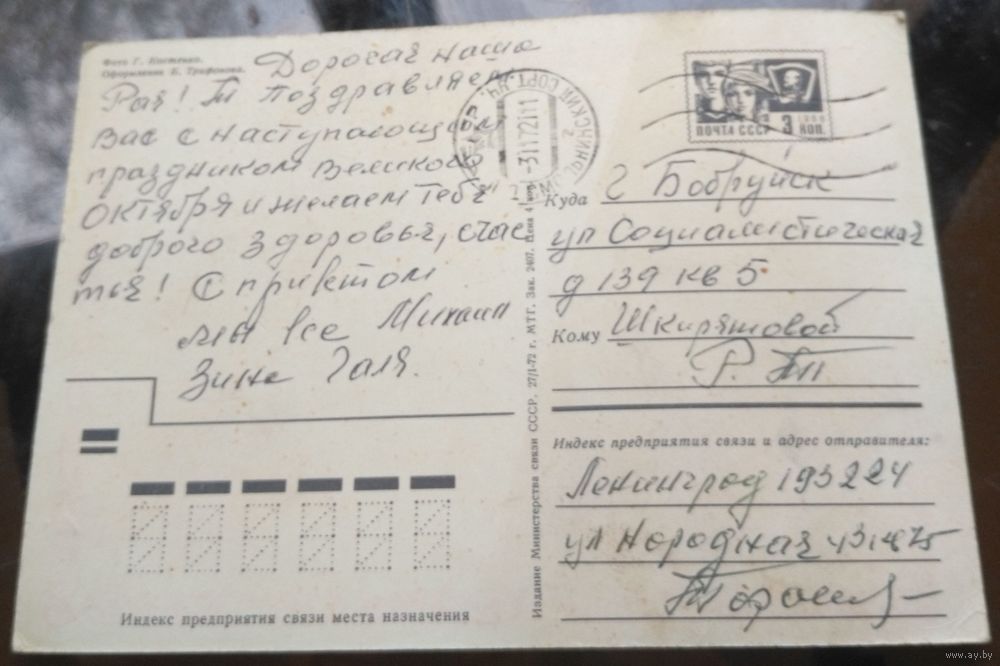 Фото Г. Костенко.
Оформление Е. Трифонова.
Дорогая наша
Рая! Т поздравляем
Вас с наступающим
праздником Великого
Октября и желаем тебе
доброго здоровья, счас
тья! С приветом
мы все Михаил
Зина Галя.
Индекс предприятия связи места назначения
Издание Министерства связи СССР. 27/I-72 г. МТГ. Зак. 2407. Цена 4 коп.
ПОЧТА СССР 3 КОП.
1966
Куда г Бобруйск
ул Социалистическая
д 139 кв 5
Кому Шкирятовой
Р. Т
Индекс предприятия связи и адрес отправителя:
Ленинград 193224
ул Народная
www.ay.by